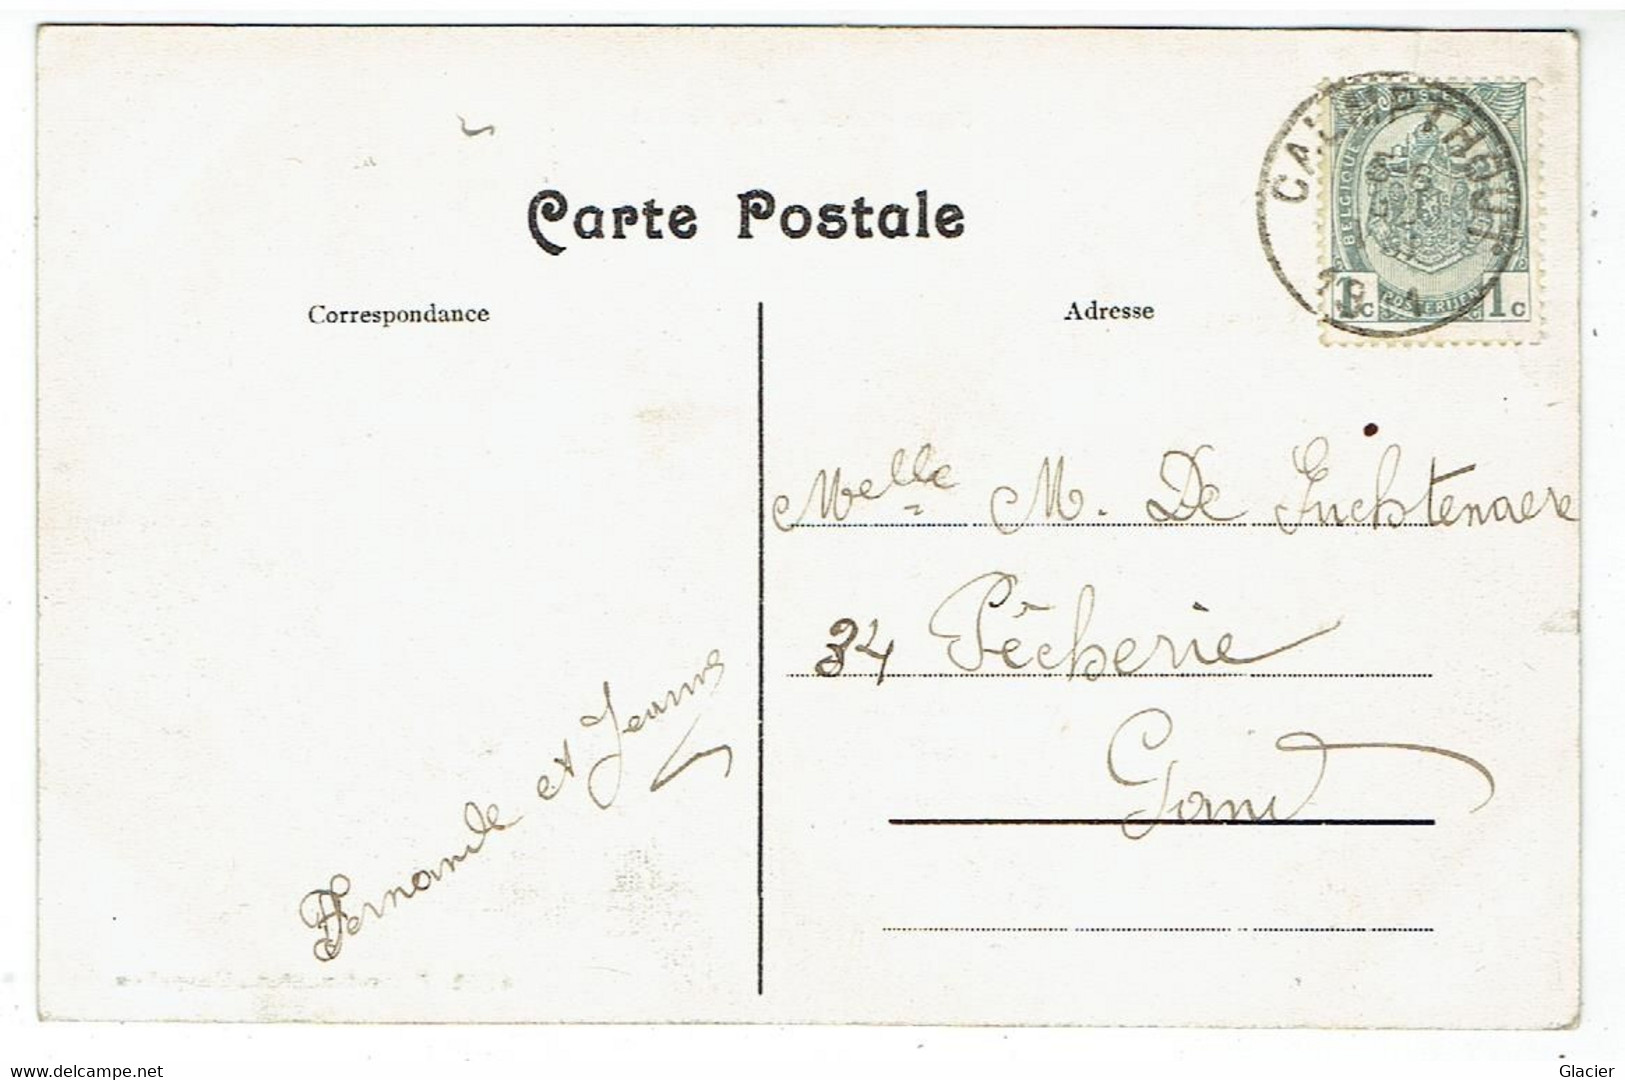 Carte Postale
Correspondance
Adresse
CALMPTHOUT
POSTES
BELGIQUE
1c POSTERIJEN 1c
Melle M. De Luchtenaere
34 Pêcherie
Gand
Fernande et Jeanne
delcampe.net
Glacier